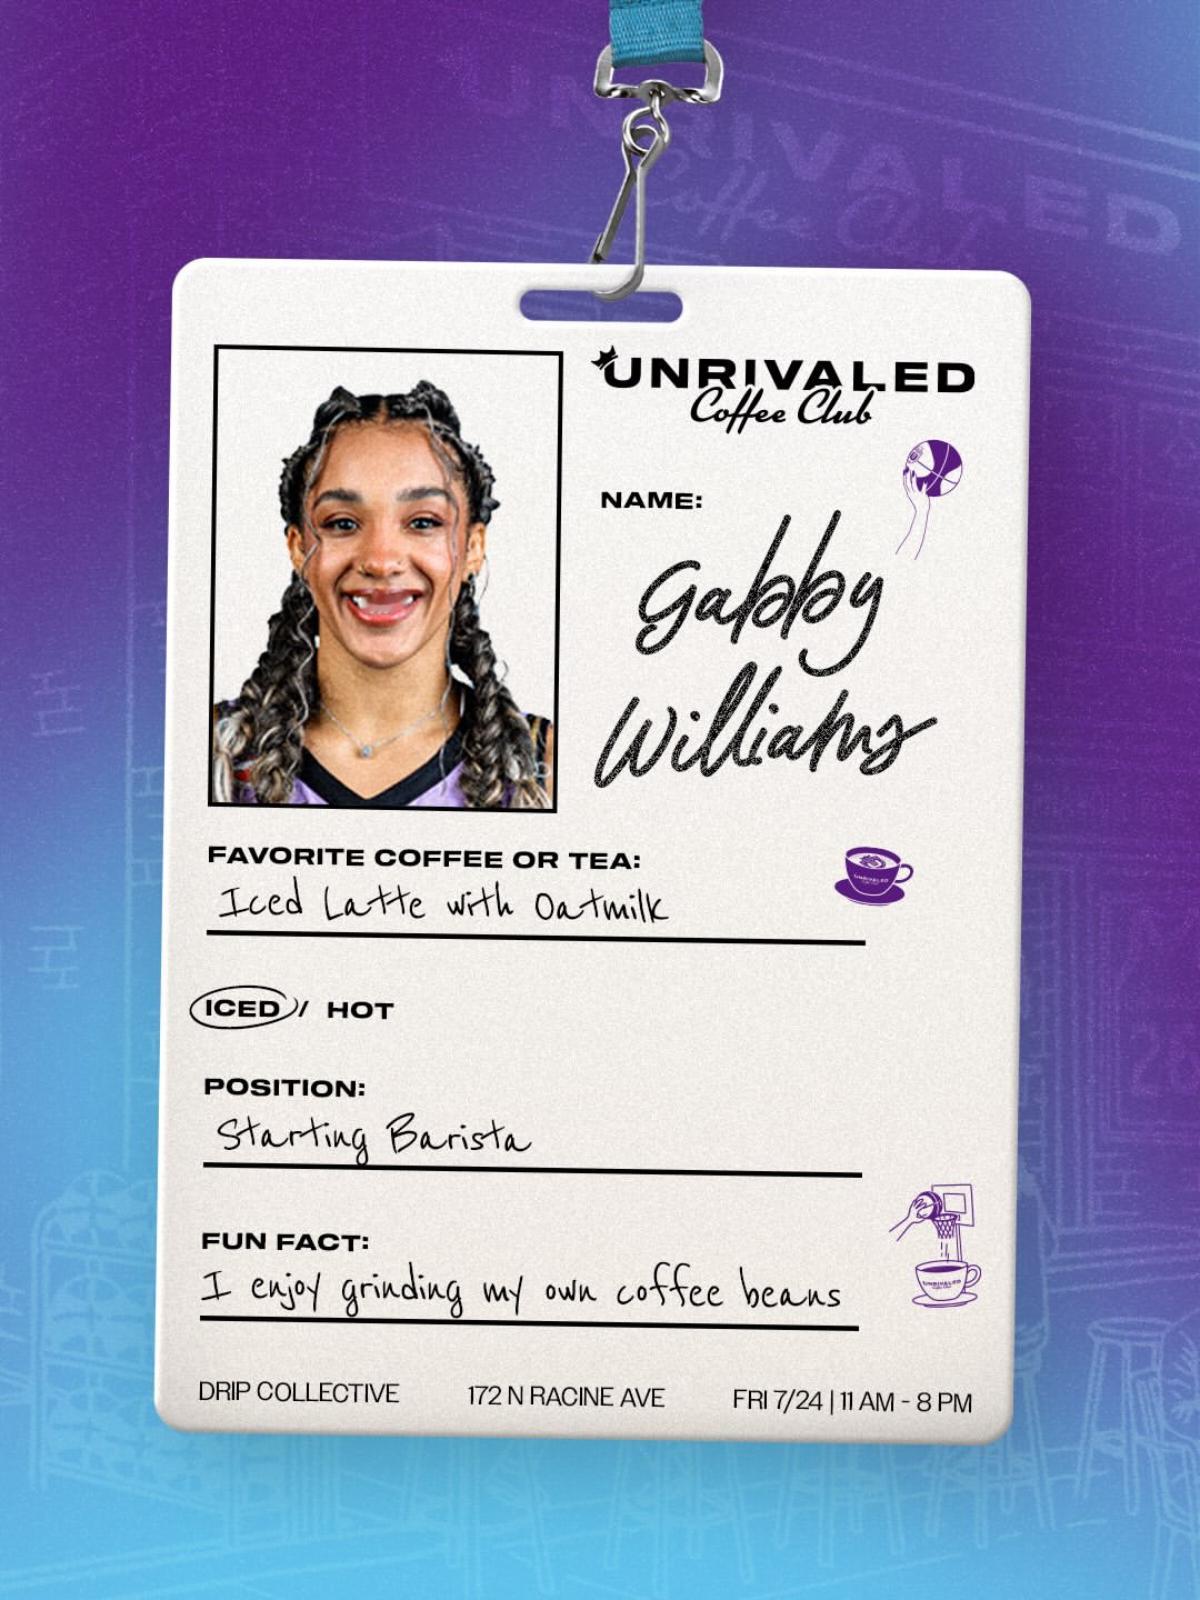 UNRIVALED
Coffee Club
UNRIVALED
Coffee Club
NAME:
Gabby
Williams
FAVORITE COFFEE OR TEA:
Iced Latte with Oatmilk
UNRIVALED
ICED / HOT
POSITION:
Starting Barista
FUN FACT:
I enjoy grinding my own coffee beans
UNRIVALED
DRIP COLLECTIVE 172 N RACINE AVE FRI 7/24 | 11 AM - 8 PM